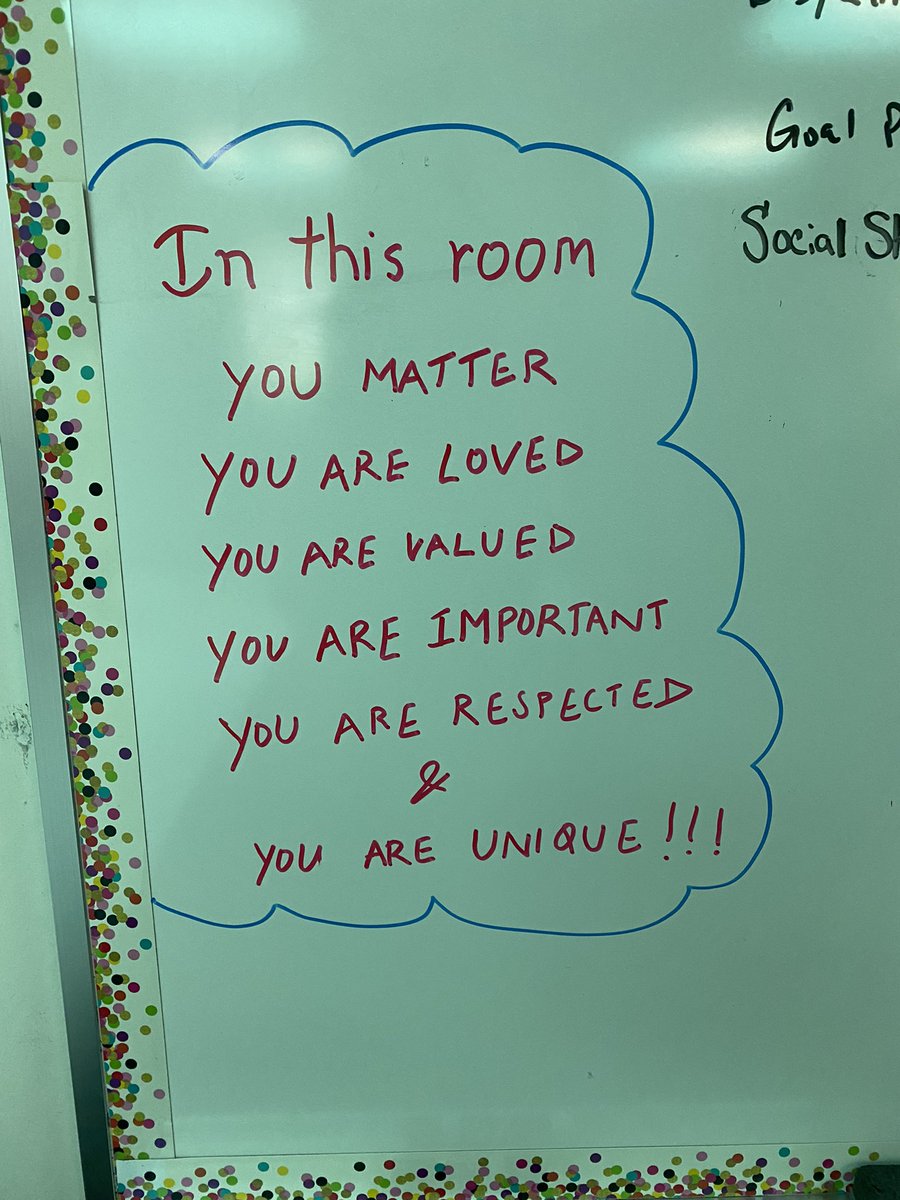 Goal
Social
In this room
YOU MATTER
YOU ARE LOVED
YOU ARE VALUED
YOU ARE IMPORTANT
YOU ARE RESPECTED
&
YOU ARE UNIQUE!!!